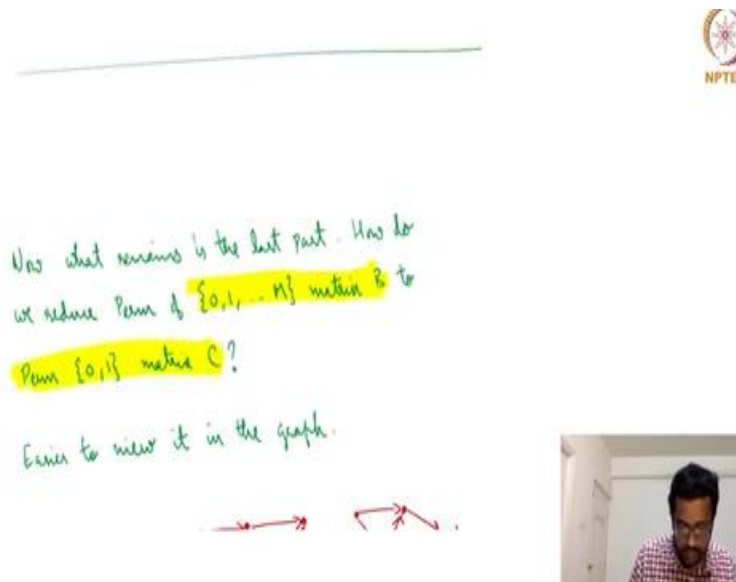 NPTE
Now what remains is the last part. How do
we reduce Perm of {0,1,..M} matrix B to
Perm {0,1} matrix C?
Easier to view it in the graph.